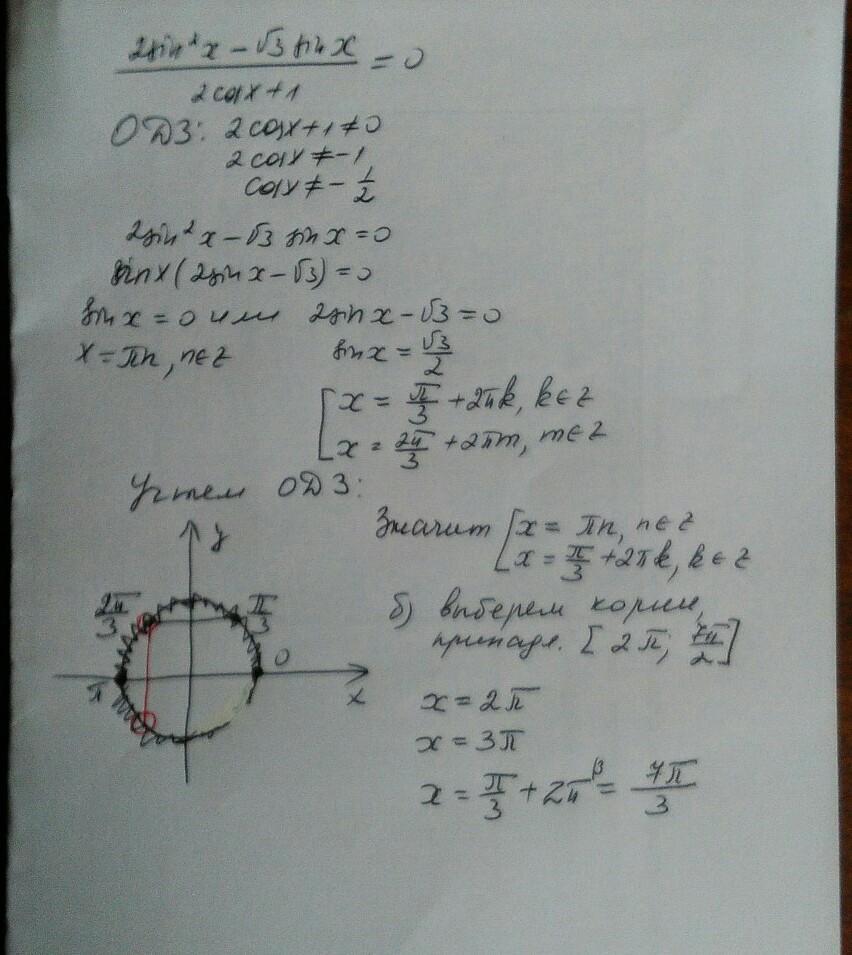 2sin²x − √3 sin x
―――――――― = 0
2cosx + 1
ОДЗ: 2cosx + 1 ≠ 0
2cosx ≠ −1
cosx ≠ − 1/2
2sin²x − √3 sin x = 0
sinx(2sinx − √3) = 0
sin x = 0 или 2sinx − √3 = 0
x = πn, n∈z sinx = √3/2
[ x = π/3 + 2πk, k∈z
x = 2π/3 + 2πm, m∈z
Учтем ОДЗ:
Значит [ x = πn, n∈z
x = π/3 + 2πk, k∈z
y
2π/3 π/3
π 0
x
б) выберем корни,
принадл. [2π; 7π/2]
x = 2π
x = 3π
x = π/3 + 2π = 7π/3